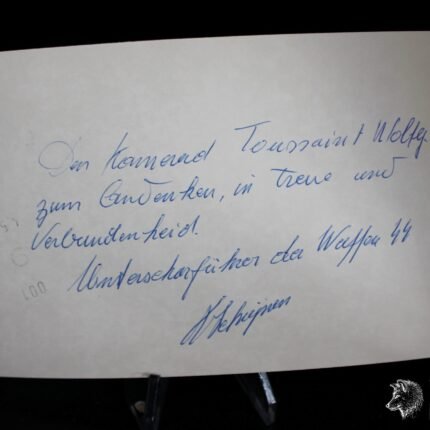 Den Kamerad Toussaint Wolfg.
zum Andenken, in treue und
Verbundenheid.
Unterscharführer der Waffen SS
001